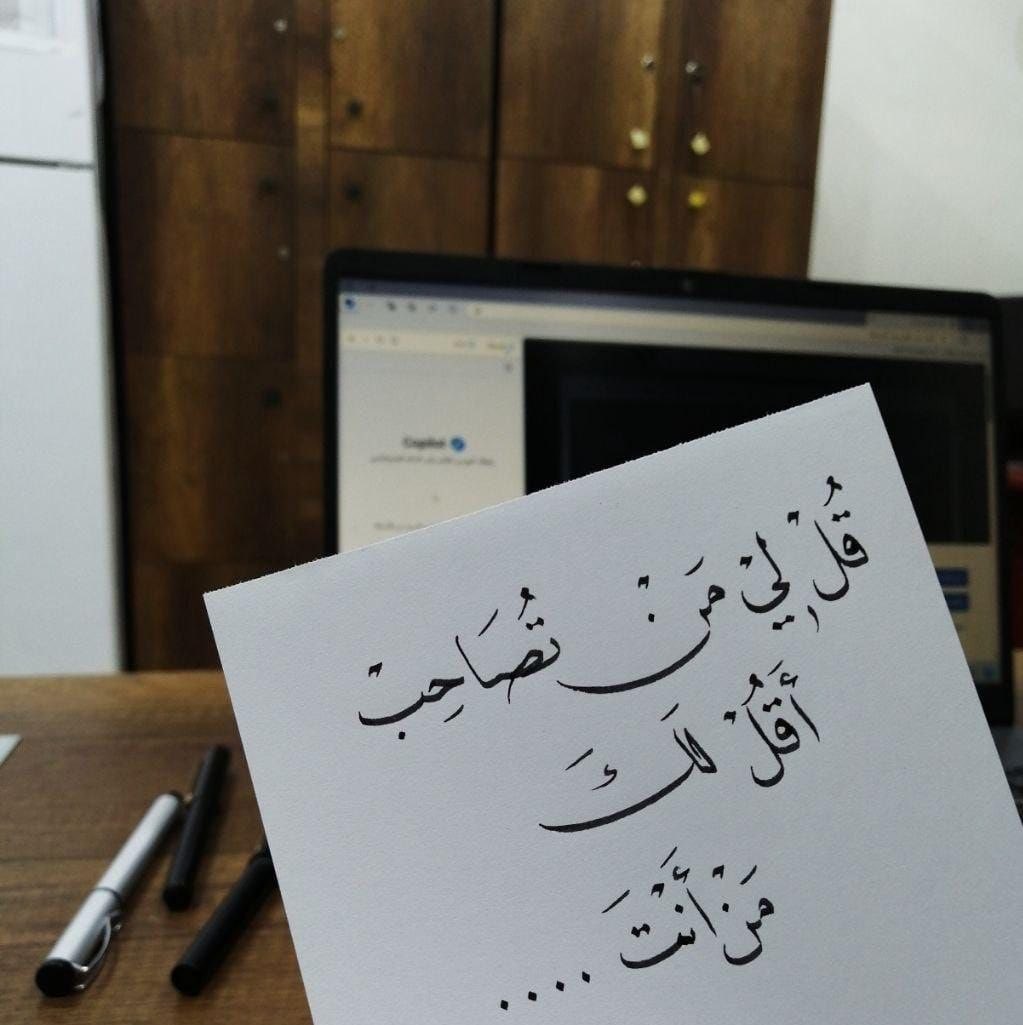 Copilot
قُلْ لِيْ مَنْ تُصَاحِبْ
أَقُلْ لَكَ
مَنْ أَنْتَ ....